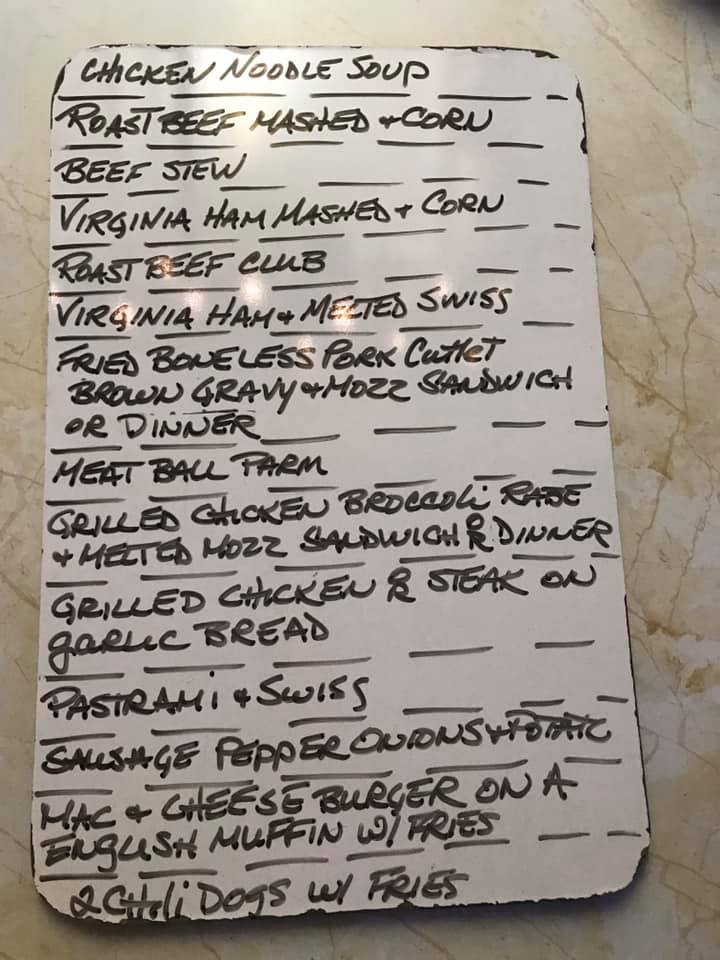 CHICKEN NOODLE SOUP
ROAST BEEF MASHED + CORN
BEEF STEW
VIRGINIA HAM MASHED + CORN
ROAST BEEF CLUB
VIRGINIA HAM + MELTED SWISS
FRIED BONELESS PORK CUTLET
BROWN GRAVY + MOZZ SANDWICH
OR DINNER
MEAT BALL PARM
GRILLED CHICKEN BROCCOLi RABE
+ MELTED MOZZ SANDWICH & DINNER
GRILLED CHICKEN & STEAK ON
GARLIC BREAD
PASTRAMi + SWISS
SAUSAGE PEPPER ONIONS + POTATO
MAC + CHEESE BURGER ON A
ENGLISH MUFFIN W/ FRIES
2 CHiLi DOGS W/ FRIES